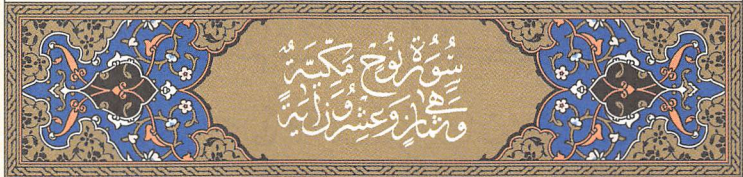 سُورَةُ نُوحٍ مَكِّيَّةٌ
وَهِيَ ثَمَانٍ وَعِشْرُونَ آيَةً